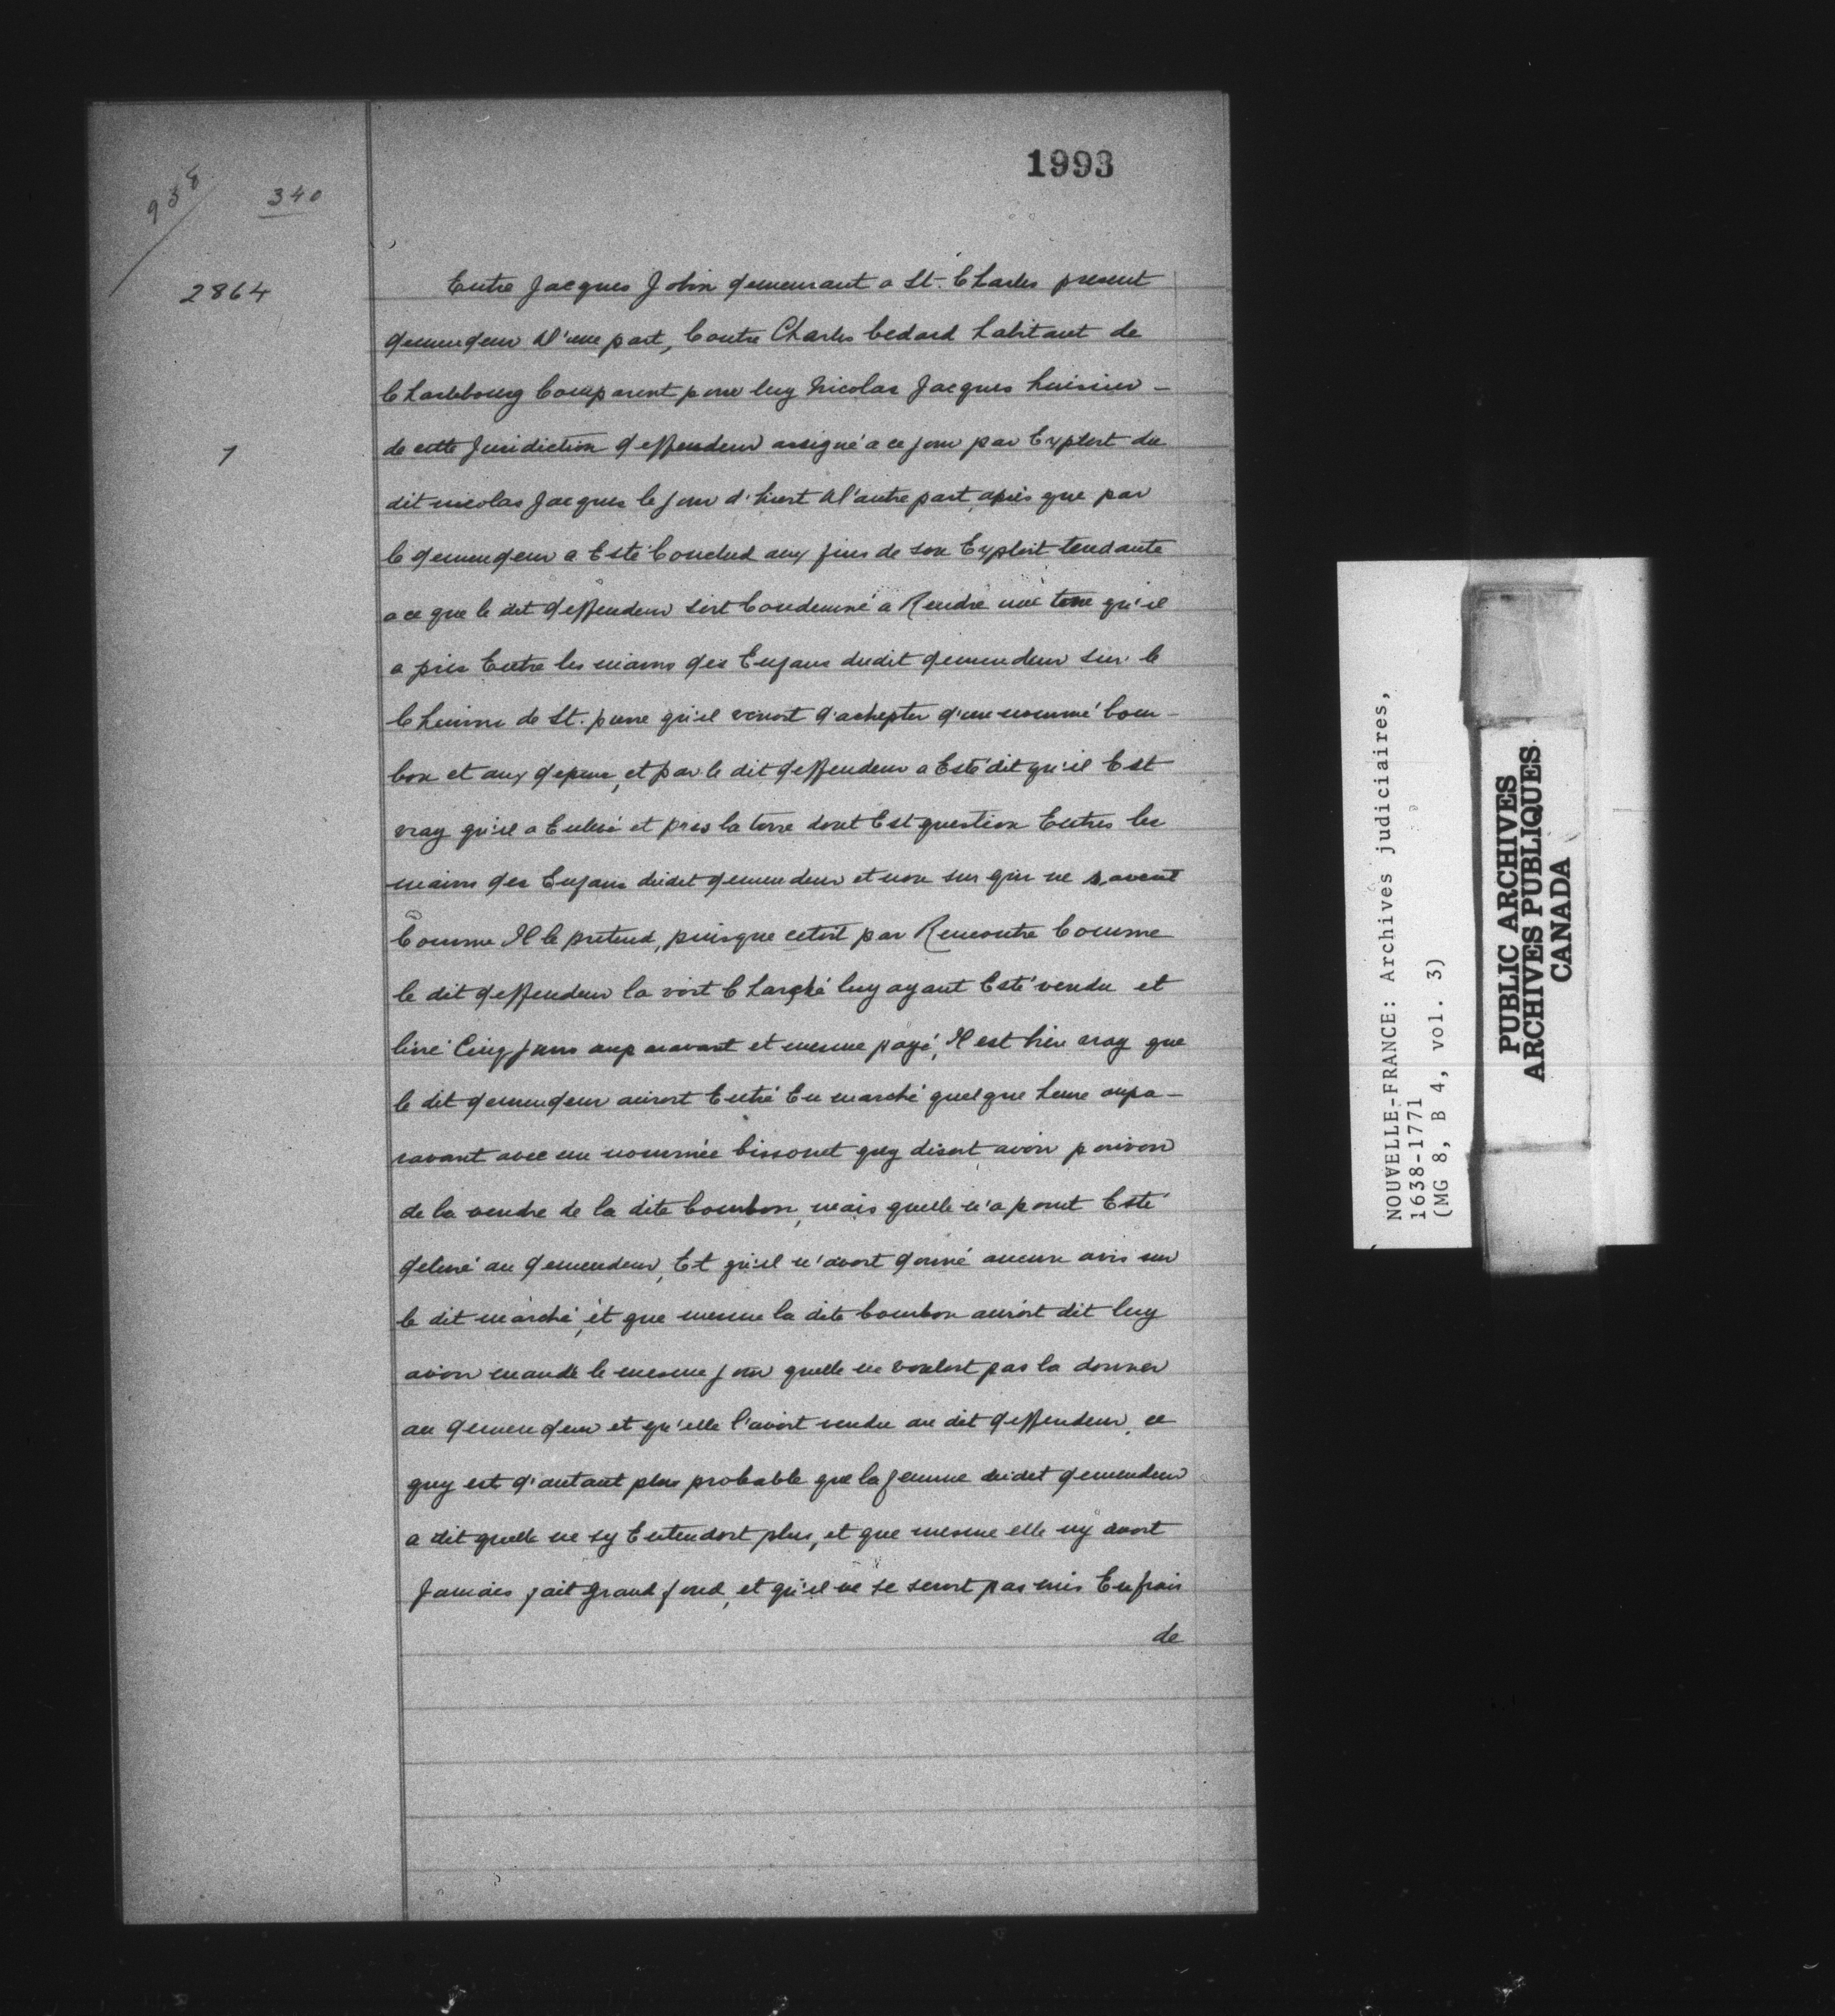 1993
938
340
2864
1
Entre Jacques Jobin demeurant a St. Charles present
demendeur D'une part, Contre Charles bedard habitant de
Charlebourg Comparent pour luy Nicolas Jacques huissier -
de cette Juridiction deffendeur assigné a ce jour par Exploit du
dit nicolas Jacques le jour d'hiert D l'autre part, après que par
le demendeur a Esté Conclud aux fins de son Exploit tendante
a ce que le dit deffendeur soit Condemné a Rendre une terre qu'il
a pris Entre les mains des Enfans dudit demendeur sur le
Chemin de St. pierre qu'il venoit d'achepter d'un nommé bour-
bon et aux depens, et par le dit deffendeur a Esté dit qu'il Est
vray qu'il a Enlevé et pris la terre dont Est question Entres les
mains des Enfans dudit demendeur et non sur qui ne savent
Comme Il le pretend, puisque cetoit par Rencontre Comme
le dit deffendeur la voit Chargé luy ayant Esté vendu et
livré Cinq jours auparavant et mesme payé, Il est bien vray que
le dit demendeur auroit Entré En marché quelque heure aupa-
ravant avec un nommée bissonet quy disoit avoir pouvoir
de la vendre de la dite bourbon, mais quelle n'a point Esté
delivré au demendeur, Et qu'il n'avoit donné aucun avis sur
le dit marché, et que mesme la dite bourbon auroit dit luy
avoir mandé le mesme jour quelle ne vouloit pas la donner
au demendeur et qu'elle l'avoit vendu au dit deffendeur, ce
quy est d'autant plus probable que la femme dudit demendeur
a dit quelle ne sy Entendoit plus, et que mesme elle ny avoit
Jamais fait grand fond, et qu'il ne se seroit pas mis En frais
de
NOUVELLE-FRANCE: Archives judiciaires,
1638-1771
(MG 8, B 4, vol. 3)
PUBLIC ARCHIVES
ARCHIVES PUBLIQUES
CANADA